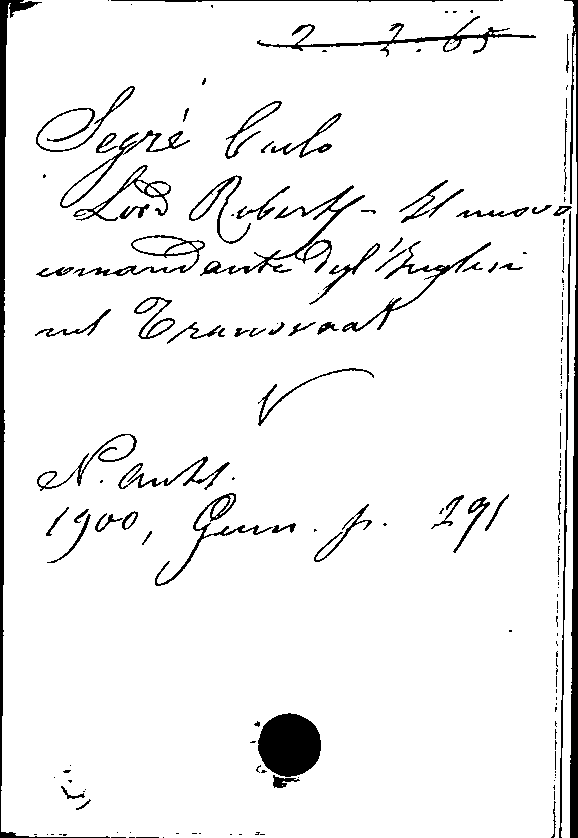 2. 2. 65
Segrè Carlo
Lord Roberts - Il nuovo
comandante degl'Inglesi
nel Transvaal
N. Antol.
1900, Genn. p. 291